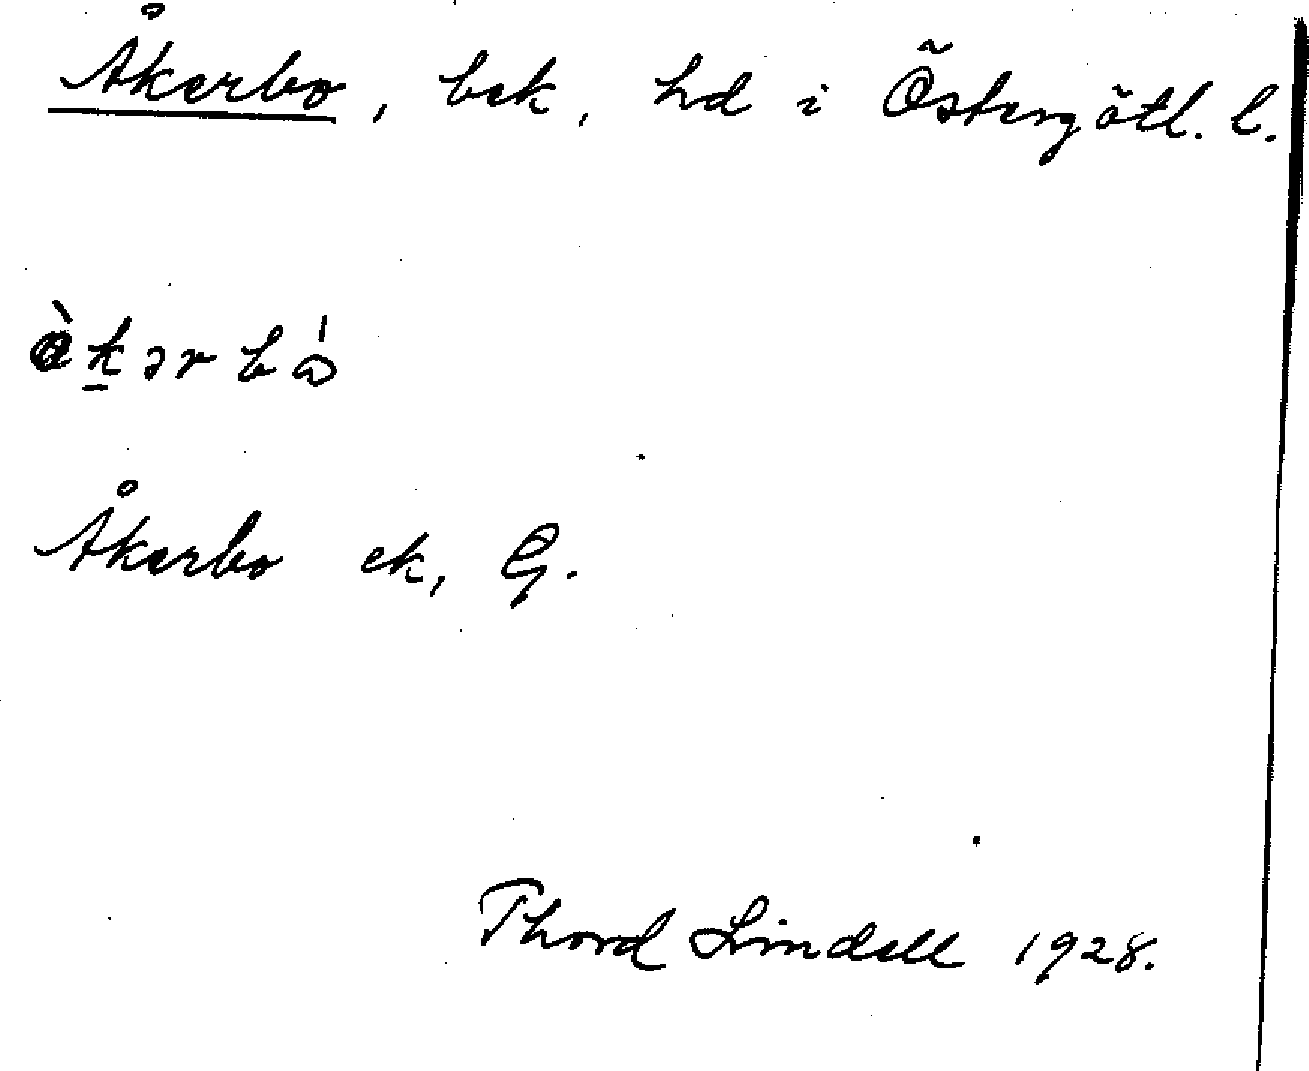 Åkerbo, bek, hd i Östergötl. l.
ò̱kərbó
Åkerbo ek, G.
Thord Lindell 1928.